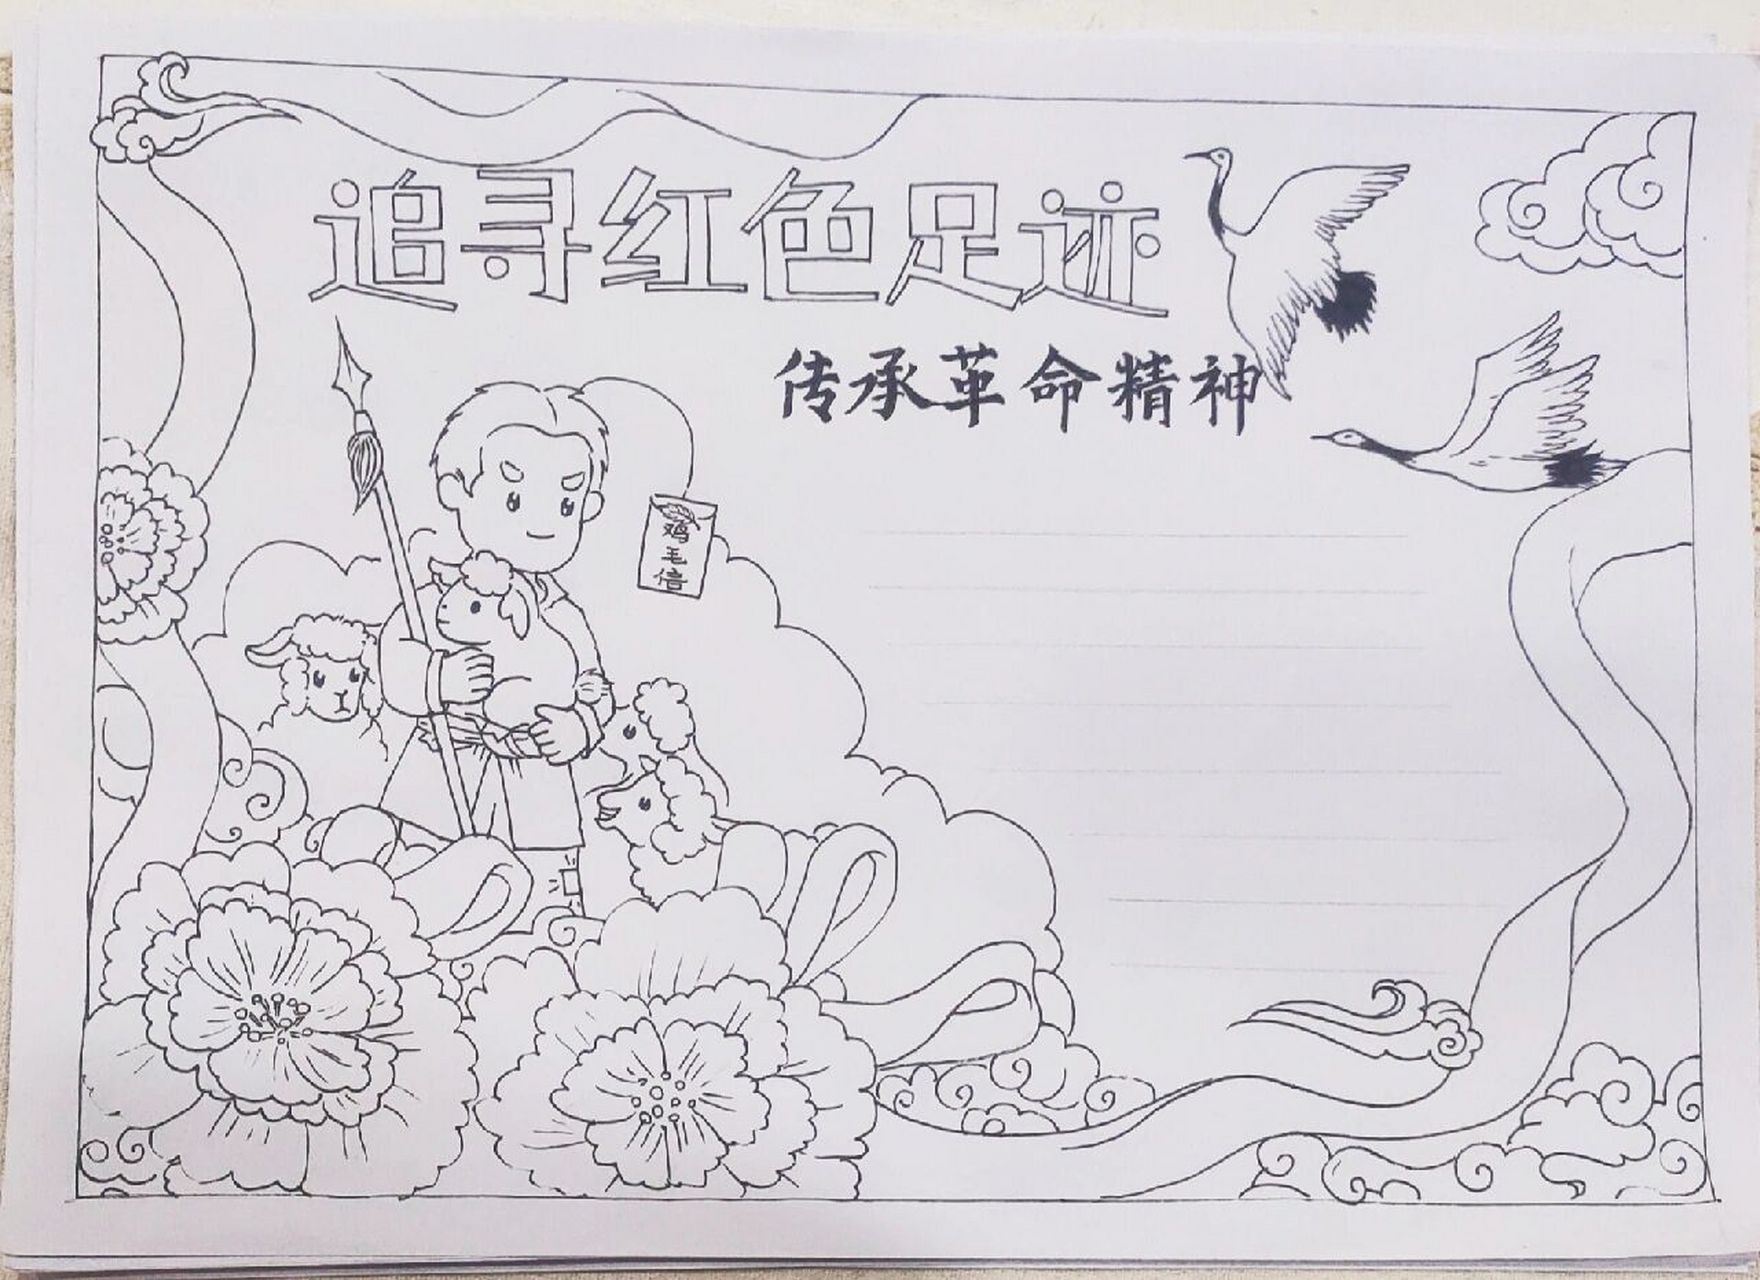 追寻红色足迹
传承革命精神
鸡毛信